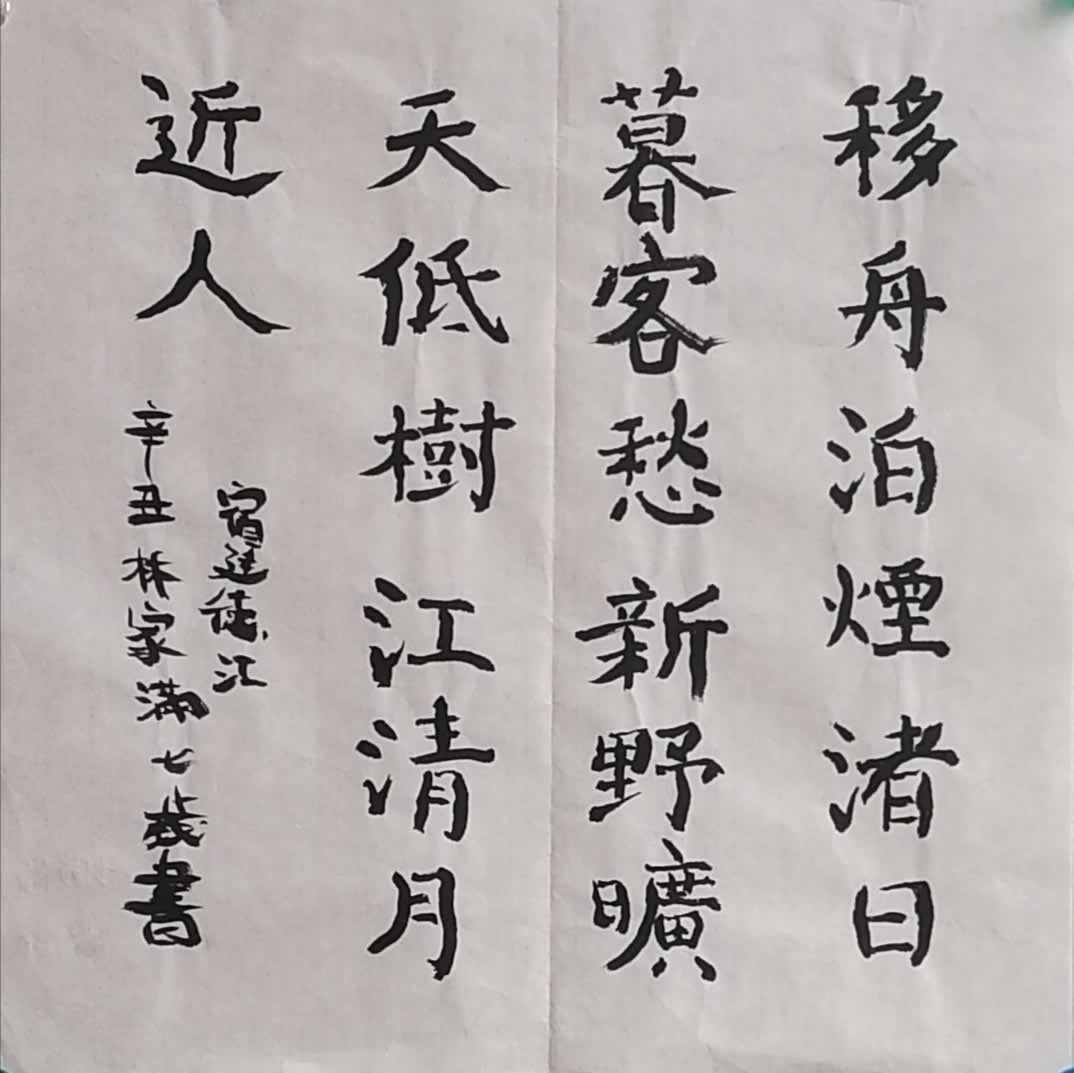 移舟泊煙渚日
暮客愁新野曠
天低樹江清月
近人
宿建德江
辛丑林家滿七歲書